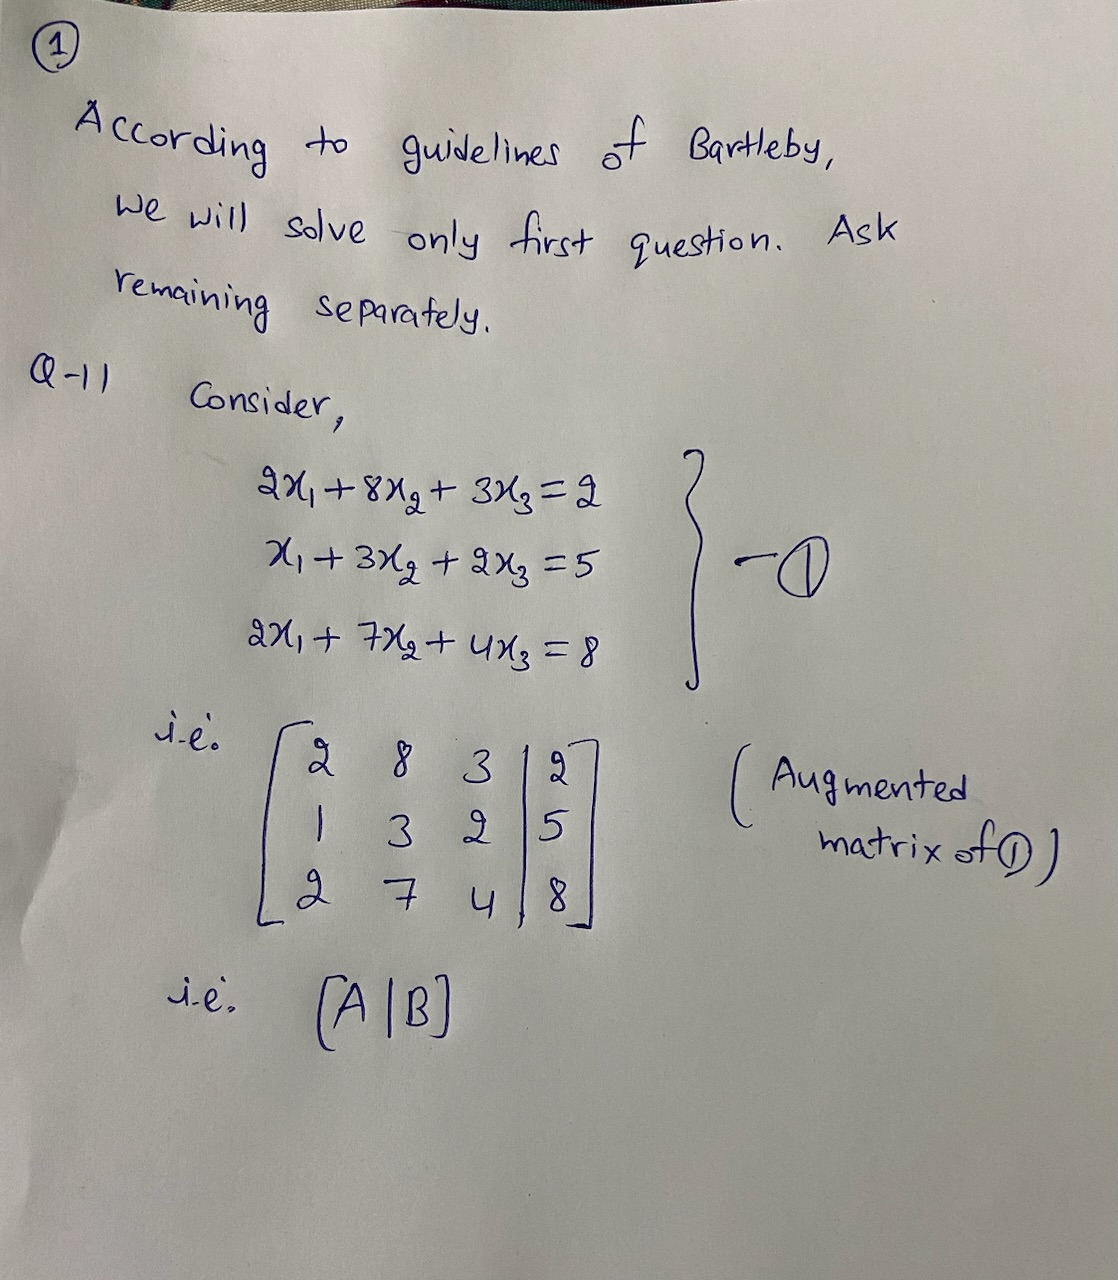 ①
According to guidelines of Bartleby,
we will solve only first question. Ask
remaining separately.
Q-11 Consider,
2x₁ + 8x₂ + 3x₃ = 2
x₁ + 3x₂ + 2x₃ = 5 } -①
2x₁ + 7x₂ + 4x₃ = 8
i.e. [ 2 8 3 | 2 ]
1 3 2 | 5
2 7 4 | 8
( Augmented
matrix of ① )
i.e. [A|B]